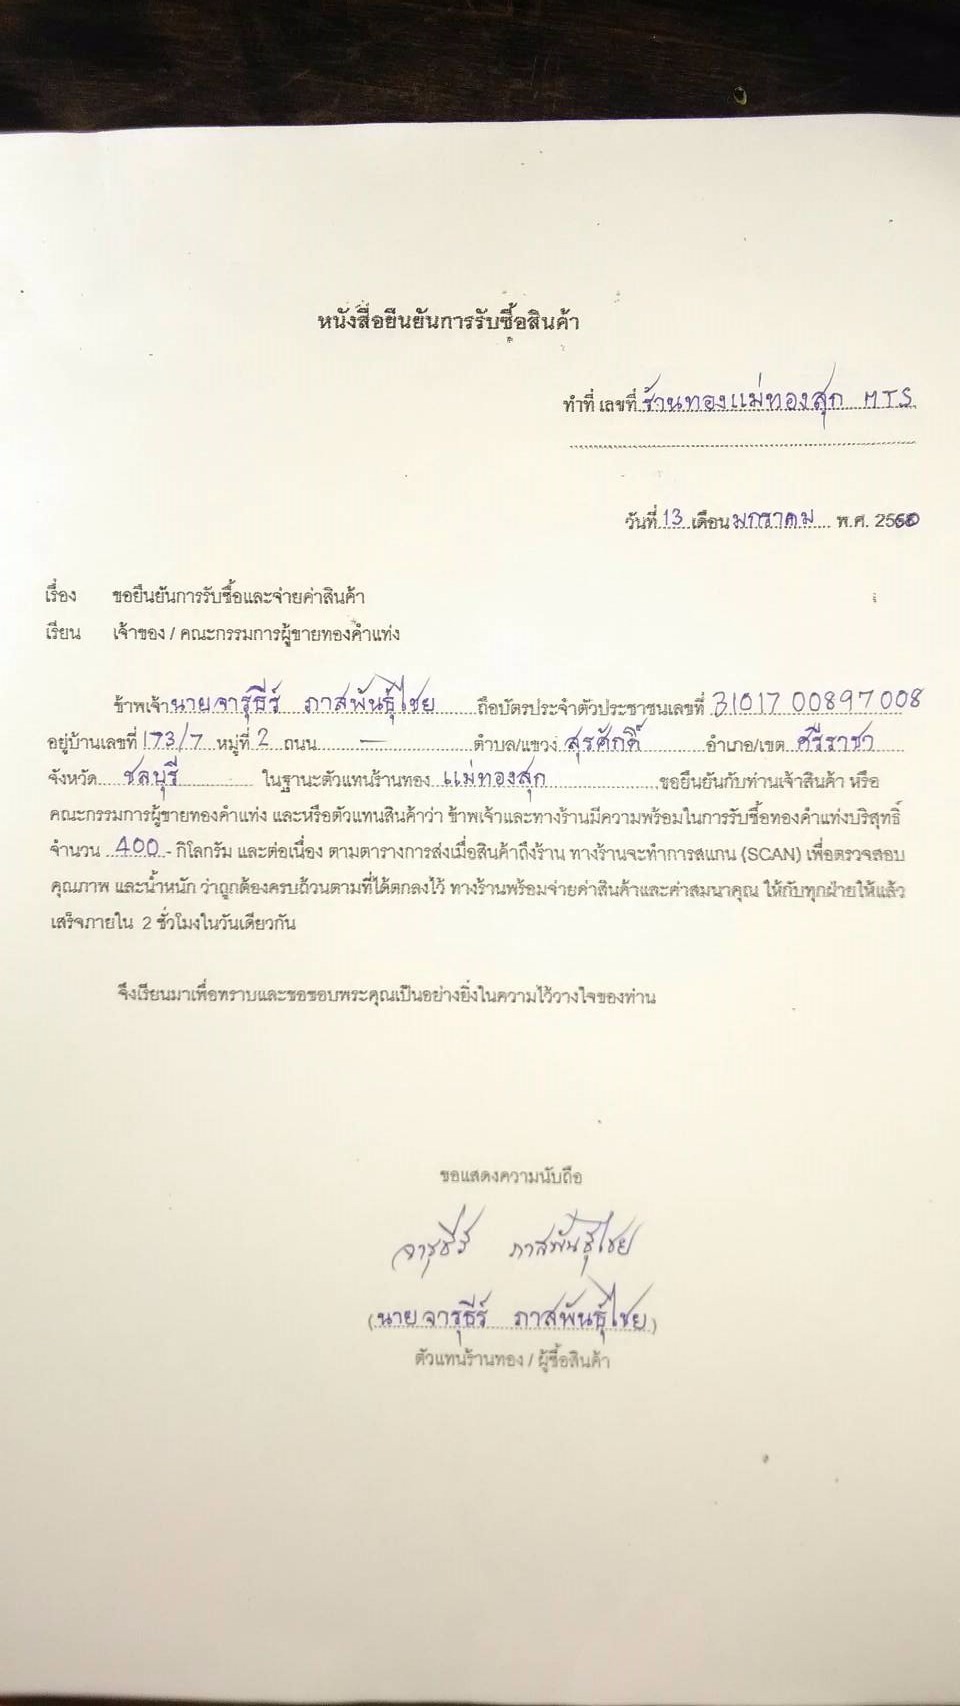 หนังสือยืนยันการรับซื้อสินค้า
ทำที่ เลขที่ ร้านทองแม่ทองสุก MTS
วันที่ 13 เดือน มกราคม พ.ศ. 2560
เรื่อง ขอยืนยันการรับซื้อและจ่ายค่าสินค้า
เรียน เจ้าของ / คณะกรรมการผู้ขายทองคำแท่ง
ข้าพเจ้า นายจารุธีร์ ภาสพันธุ์ไชย ถือบัตรประจำตัวประชาชนเลขที่ 31017 00897008
อยู่บ้านเลขที่ 173/7 หมู่ที่ 2 ถนน — ตำบล/แขวง สุรศักดิ์ อำเภอ/เขต ศรีราชา
จังหวัด ชลบุรี ในฐานะตัวแทนร้านทอง แม่ทองสุก ขอยืนยันกับท่านเจ้าสินค้า หรือ
คณะกรรมการผู้ขายทองคำแท่ง และหรือตัวแทนสินค้าว่า ข้าพเจ้าและทางร้านมีความพร้อมในการรับซื้อทองคำแท่งบริสุทธิ์
จำนวน 400 - กิโลกรัม และต่อเนื่อง ตามตารางการส่งเมื่อสินค้าถึงร้าน ทางร้านจะทำการสแกน (SCAN) เพื่อตรวจสอบ
คุณภาพ และน้ำหนัก ว่าถูกต้องครบถ้วนตามที่ได้ตกลงไว้ ทางร้านพร้อมจ่ายค่าสินค้าและค่าสมนาคุณ ให้กับทุกฝ่ายให้แล้ว
เสร็จภายใน 2 ชั่วโมงในวันเดียวกัน
จึงเรียนมาเพื่อทราบและขอขอบพระคุณเป็นอย่างยิ่งในความไว้วางใจของท่าน
ขอแสดงความนับถือ
จารุธีร์ ภาสพันธุ์ไชย
(นายจารุธีร์ ภาสพันธุ์ไชย)
ตัวแทนร้านทอง / ผู้ซื้อสินค้า